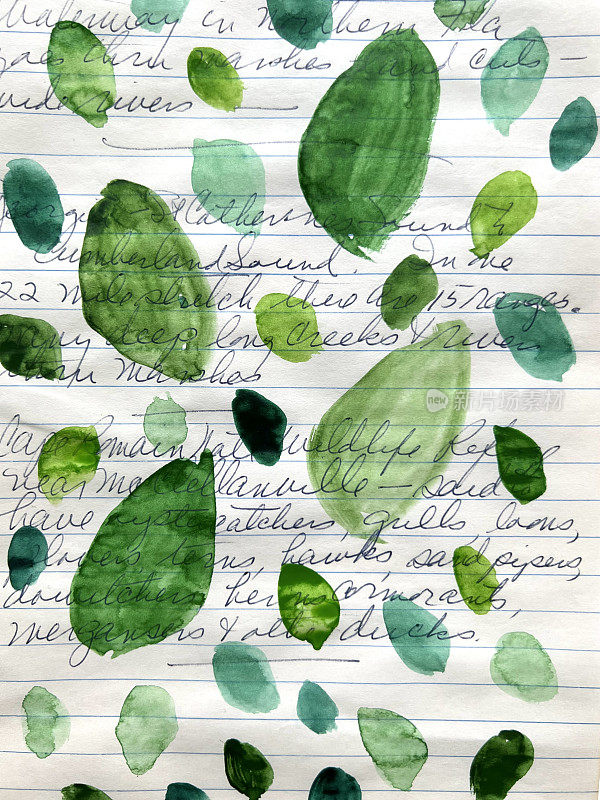 Waterway in Northern Fla
goes thru marshes and cuts —
wide rivers —
Georgia — St Catherines Sound &
Cumberland Sound. In one
22 mile stretch there are 15 ranges.
many deep long creeks & rivers
thru marshes
Cape Romain Natl Wildlife Refuge
near McClellanville — said to
have oystercatchers, gulls, loons,
plovers, terns, hawks, sandpipers,
dowitchers, herons, cormorants,
merganser & other ducks.
new iStock